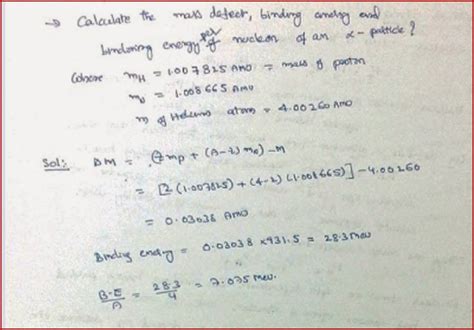 → Calculate the mass defect, binding energy and
bindoning energy per of nucleon of an α-particle?
Where mH = 1.007825 AMU = mass of proton
= 1.008665 AMU
m of Helium atom = 4.00260 AMU
Sol: ΔM = (Z mp + (A-Z) mn) - M
= [2 (1.007825) + (4-2) (1.008665)] - 4.00260
= 0.03038 AMU
Binding energy = 0.03038 × 931.5 = 28.3 Mev
B-E/A = 28.3/4 = 7.075 Mev.